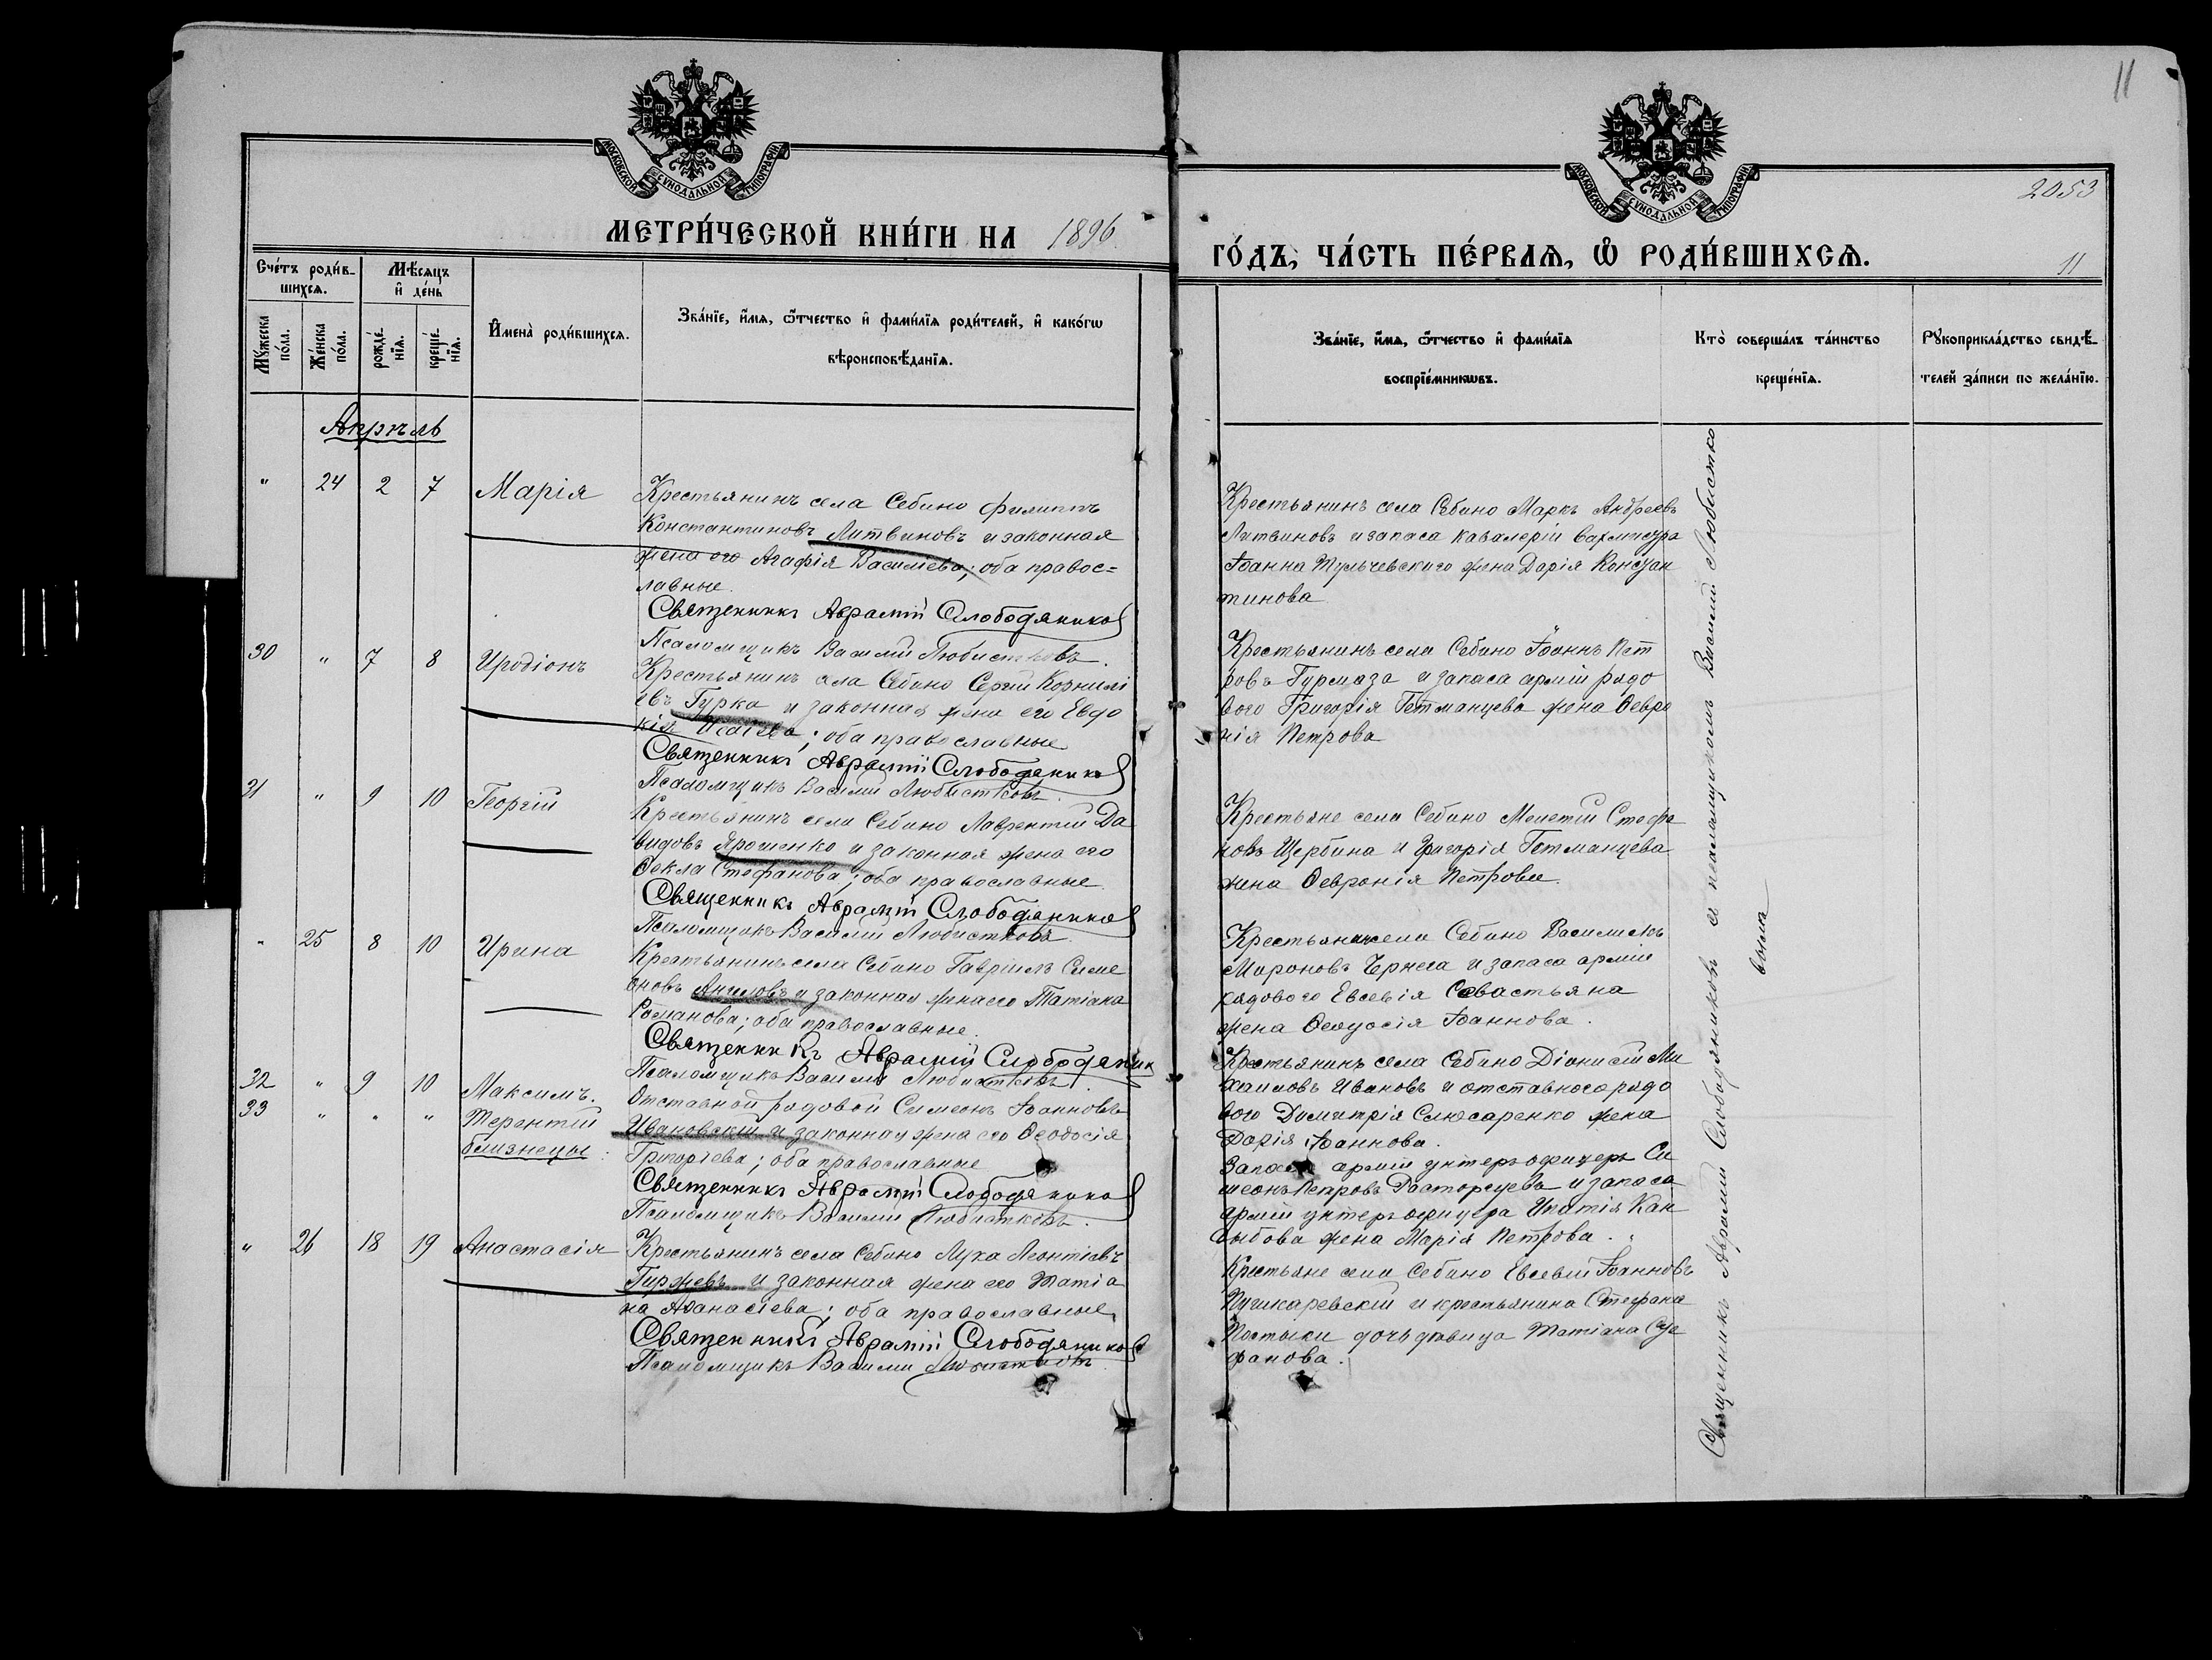 11
МОСКОВСКОЙ СѴНОДАЛЬНОЙ ТИПОГРАФІИ
МОСКОВСКОЙ СѴНОДАЛЬНОЙ ТИПОГРАФІИ
2053
МЕТРИ́ЧЕСКОЙ КНИ́ГИ НА 1896
ГО́ДЪ, ЧА́СТЬ ПЕ́РВАѦ, Ѡ҆ РОДИ́ВШИХСѦ.
11
Сче́тъ роди́в-
шихсѧ.
Мꙋ́жеска по́ла.
Же́нска по́ла.
Мѣ́сѧцъ
и҆ де́нь
рожде́-
нїѧ.
креще́-
нїѧ.
И҆мена̀ роди́вшихсѧ.
Зва́нїе, и҆́мѧ, ѻ҆́тчество и҆ фами́лїѧ роди́телей, и҆ како́гѡ
вѣроисповѣ́данїѧ.
Зва́нїе, и҆́мѧ, ѻ҆́тчество и҆ фами́лїѧ
воспрїе́мникѡвъ.
Кто̀ соверша́лъ та́инство
креще́нїѧ.
Рꙋкоприкла́дство свидѣ́-
телей за́писи по жела́нїю.
Апрѣль
" 24 2 7 Марія
Крестьянинъ села Себино Филиппъ
Константиновъ Литвиновъ и законная
жена его Агафія Василіева; оба правос=
лавные.
Священникъ Аврамій Слободяников
Псаломщикъ Василій Любистковъ.
Крестьянинъ села Себино Маркъ Андреевъ
Литвиновъ и запаса кавалеріи вахмистра
Іоанна Тульчевскаго жена Дарія Констан
тинова
30 " 7 8 Иродіонъ
Крестьянинъ села Себино Сергій Корнилі
евъ Гурка и законная жена его Евдо
кія Исаіева; оба православные
Священникъ Аврамій Слободяников
Псаломщикъ Василій Любистковъ.
Крестьянинъ села Себино Іоаннъ Пет
ровъ Гурмаза и запаса арміи рядо
вого Григорія Гетманцева жена Февро
нія Петрова
31 " 9 10 Георгій
Крестьянинъ села Себино Лаврентій Да
видовъ Ярошенко и законная жена его
Ѳекла Стефанова; оба православные
Священникъ Аврамій Слободяников
Псаломщикъ Василій Любистковъ
Крестьяне села Себино Мелетій Стефа
новъ Щербина и Григорія Гетманцева
жена Февронія Петрова.
" 25 8 10 Ирина
Крестьянинъ села Себино Гавріилъ Симе
оновъ Ангеловъ и законная жена его Татіана
Романова; оба православные.
Священникъ Аврамій Слободяник
Псаломщикъ Василій Любистковъ
Крестьянинъ села Себино Василій
Мироновъ Чернега и запаса арміи
рядового Евсевія Севастьяна
жена Ѳеодосія Іоаннова.
32 " 9 10 Максимъ.
33 " " " Терентій
близнецы.
Отставной рядовой Симеонъ Іоанновъ
Ивановскій и законная жена его Ѳеодосія
Григоріева; оба православные
Священникъ Аврамій Слободяников
Псаломщикъ Василій Любистковъ.
Крестьянинъ села Себино Діонисій Ми
хаиловъ Ивановъ и отставного рядо
вого Димитрія Слюсаренко жена
Дарія Іоаннова.
Запаса арміи унтеръ офицеръ Си
меонъ Петровъ Расторгуевъ и запаса
арміи унтеръ офицера Ипатія Кан
дыбова жена Марія Петрова.
" 26 18 19 Анастасія
Крестьянинъ села Себино Лука Леонтіевъ
Гуржевъ и законная жена его Татіа
на Аѳанасіева; оба православные
Священникъ Аврамій Слободяников
Псаломщикъ Василій Любистковъ
Крестьяне села Себино Евсевій Іоанновъ
Пушкаревскій и крестьянина Стефана
Постыки дочь дѣвица Татіана Сте
фанова.
Священникъ Аврамій Слободяниковъ съ псаломщикомъ Василій Любистко
вымъ